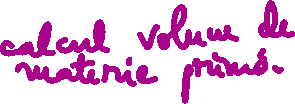 calcul volume de
materie primă.